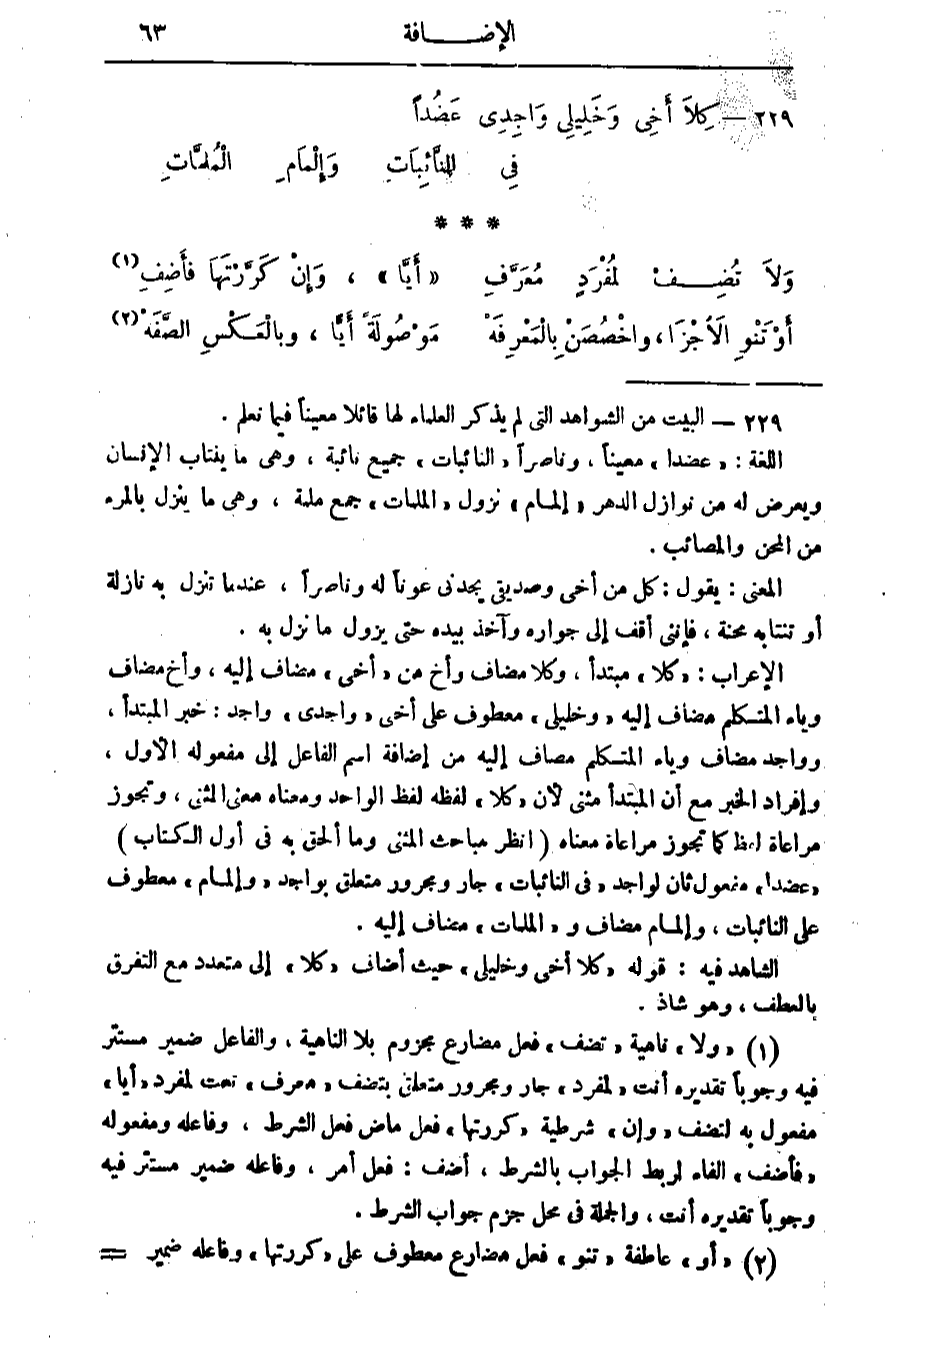 الإضافة ٦٣
٢٢٩ — كِلاَ أَخِي وَخَلِيلِي وَاجِدِي عَضُداً
فِي النَّائِبَاتِ وَإِلْمَامِ الْمُلِمَّاتِ
* * *
وَلاَ تُضِفْ لِمُفْرَدٍ مُعَرَّفِ «أَيًّا» ، وَإِنْ كَرَّرْتَهَا فَأَضِفِ (١)
أَوْ تَنْوِ الاَجْزَا، وَاخْصُصَنْ بِالْمَعْرِفَهْ مَوْصُولَةً أَيًّا ، وبالْعَكْسِ الصِّفَهْ (٢)
٢٢٩ — البيت من الشواهد التى لم يذكر العلماء لها قائلا معيناً فيما نعلم .
اللغة : «عضدا» معيناً ، وناصراً «النائبات» جميع نائبة ، وهى ما ينتاب الإنسان
ويعرض له من نوازل الدهر «إلمام» نزول «الملمات» جمع ملمة ، وهى ما ينزل بالمرء
من المحن والمصائب .
المعنى : يقول : كل من أخى وصديقى يجدنى عوناً له وناصراً ، عندما تنزل به نازلة
أو تنتابه محنة ، فإننى أقف إلى جواره وآخذ بيده حتى يزول ما نزل به .
الإعراب : «كلا» مبتدأ ، وكلا مضاف وأخ من «أخى» مضاف إليه ، وأخ مضاف
وياء المتكلم مضاف إليه «وخليلى» معطوف على أخى «واجدى» واجد : خبر المبتدأ ،
وواجد مضاف وياء المتكلم مصاف إليه من إضافة اسم الفاعل إلى مفعوله الأول ،
وإفراد الخبر مع أن المبتدأ مثنى لأن «كلا» لفظه لفظ الواحد ومعناه معنى المثنى ، وتجوز
مراعاة لفظه كما تجوز مراعاة معناه (انظر مباحث المثنى وما ألحق به فى أول الكتاب)
«عضدا» مفعول ثان لواجد «فى النائبات» جار ومجرور متعلق بواجد «وإلمام» معطوف
على النائبات ، وإلمام مضاف و «الملمات» مضاف إليه .
الشاهد فيه : قوله «كلا أخى وخليلى» حيث أضاف «كلا» إلى متعدد مع التفرق
بالعطف ، وهو شاذ .
(١) «ولا» ناهية «تضف» فعل مضارع مجزوم بلا الناهية ، والفاعل ضمير مستتر
فيه وجوباً تقديره أنت «لمفرد» جار ومجرور متعلق بتضف «معرف» نعت لمفرد «أيا»
مفعول به لتضف «وإن» شرطية «كررتها» فعل ماض فعل الشرط ، وفاعله ومفعوله
«فأضف» الفاء لربط الجواب بالشرط ، أضف : فعل أمر ، وفاعله ضمير مستتر فيه
وجوباً تقديره أنت ، والجملة فى محل جزم جواب الشرط .
(٢) «أو» عاطفة «تنو» فعل مضارع معطوف على «كررتها» وفاعله ضمير =